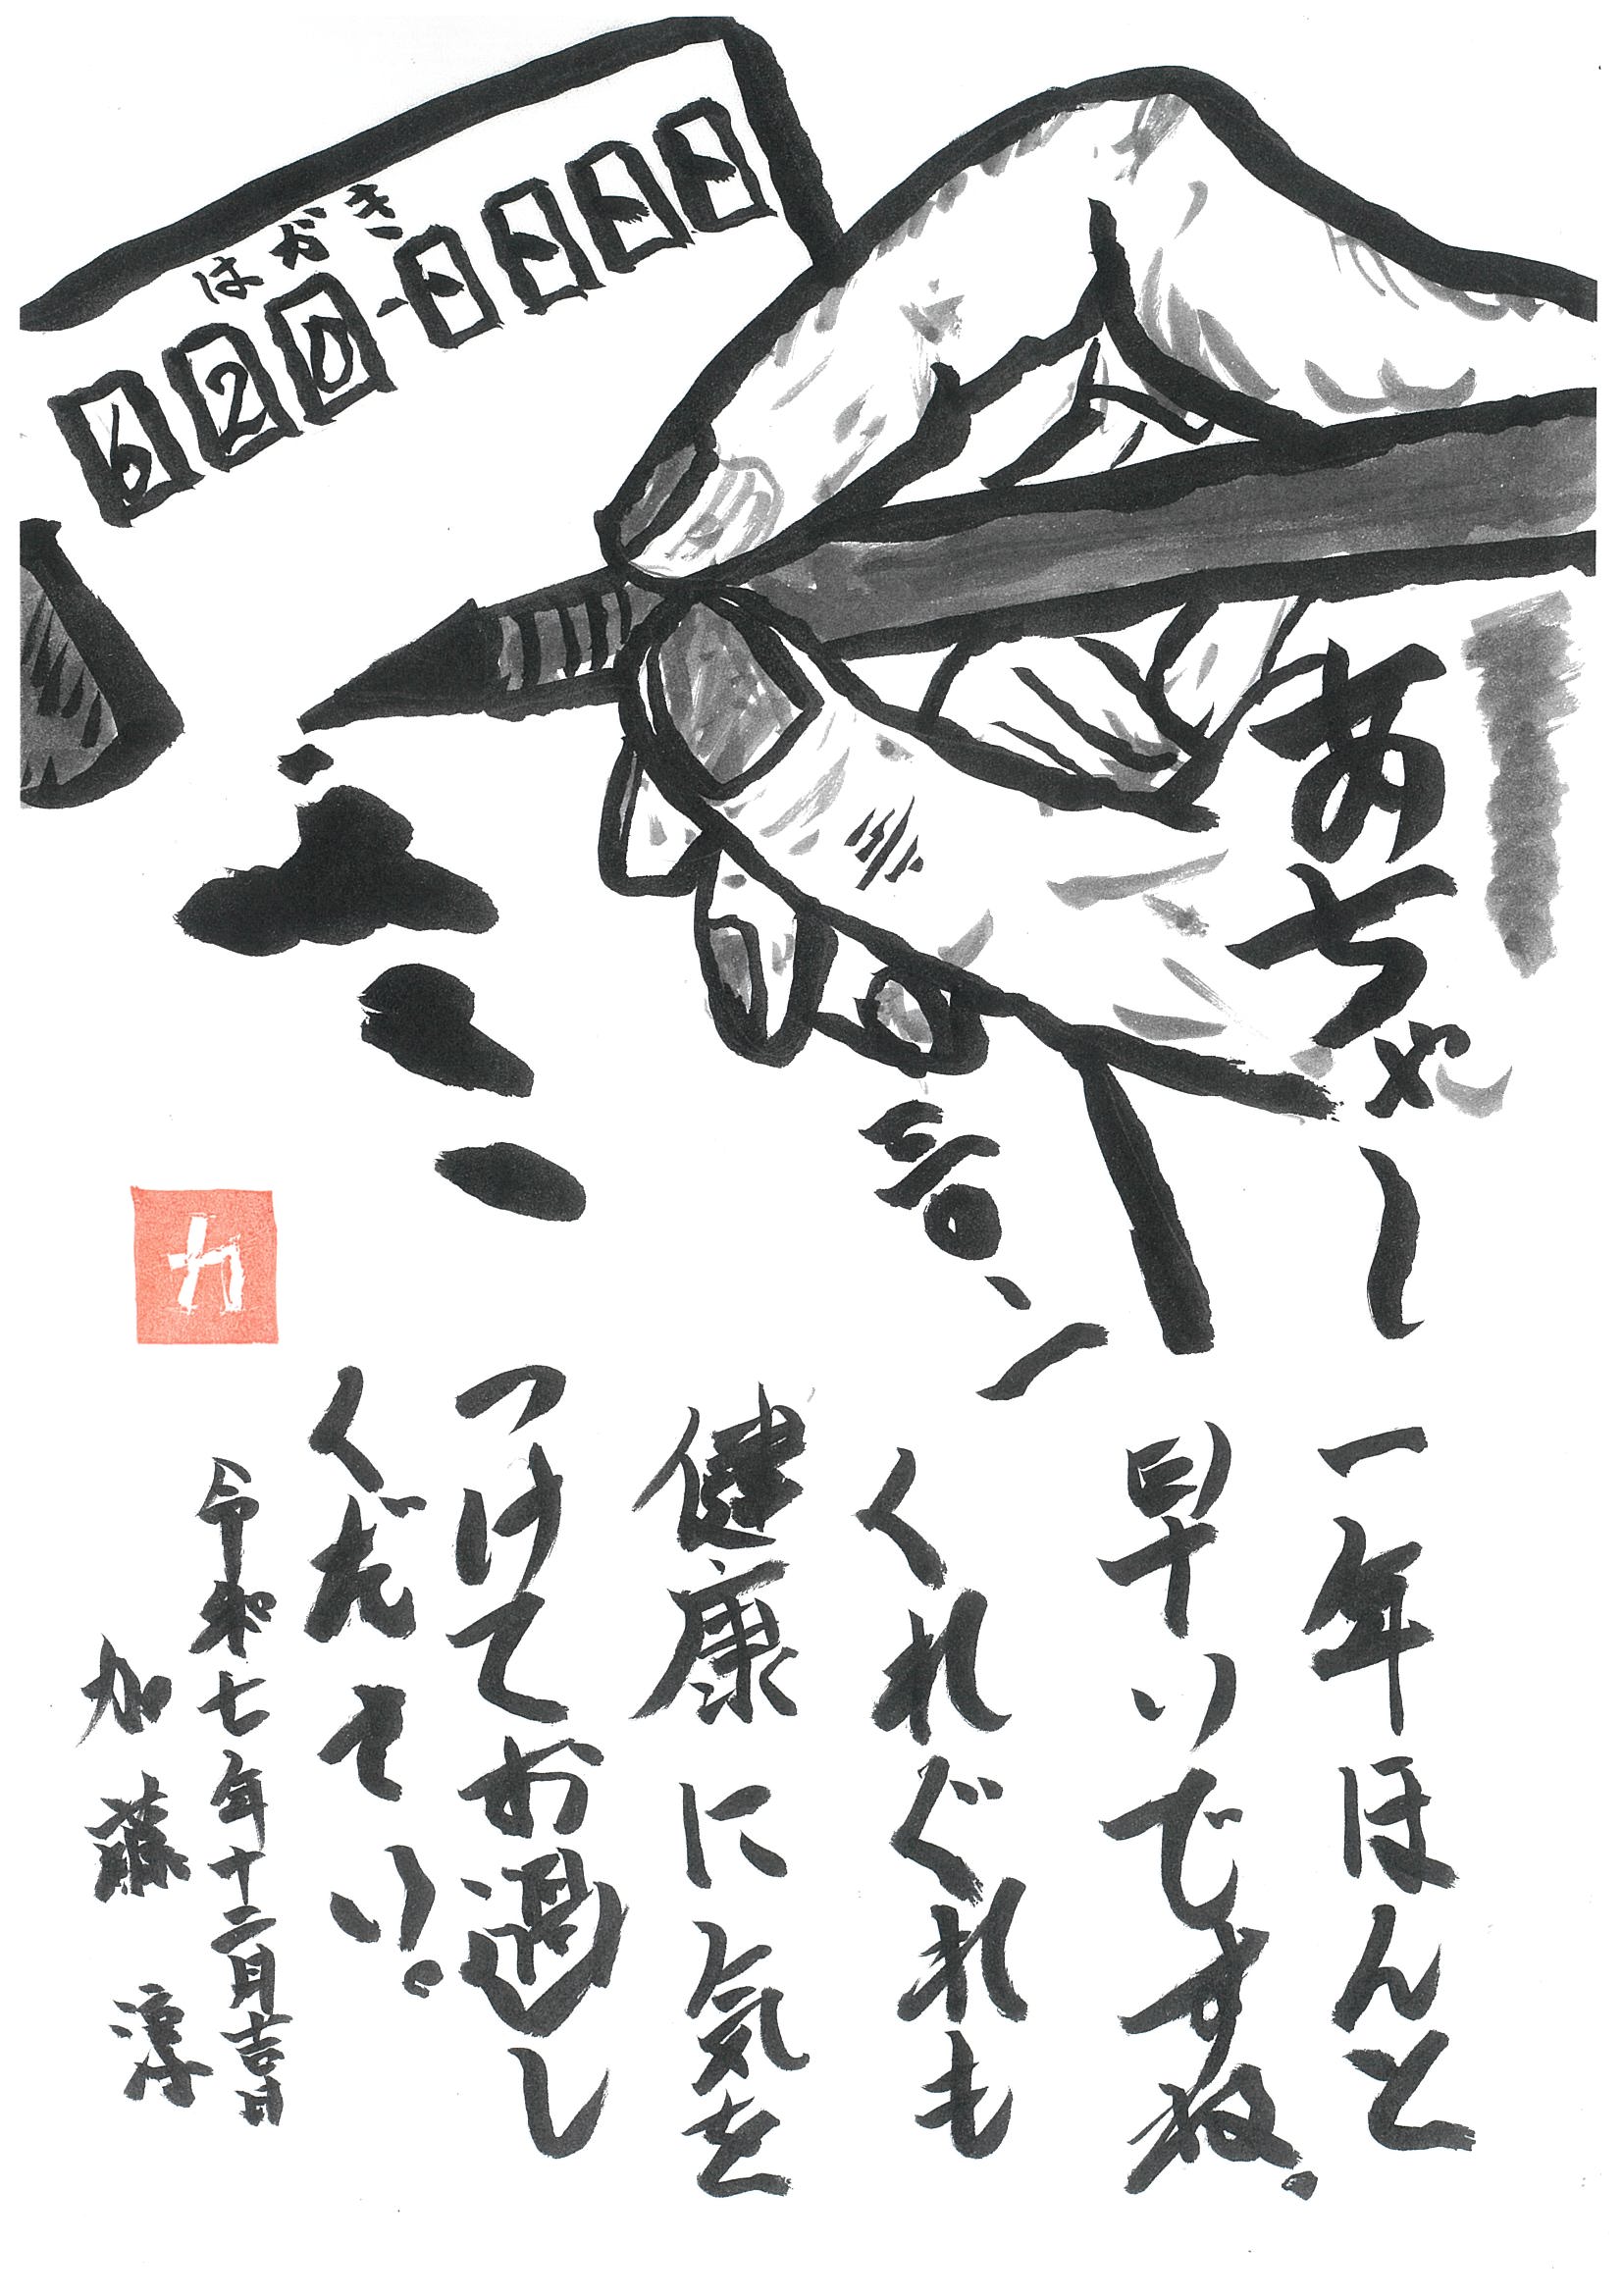 はがき
620-
あちゃー
一年ほんと
早いですね。
くれぐれも
健康に気を
つけてお過し
ください。
令和七年十二月吉日
加藤 淳
カ